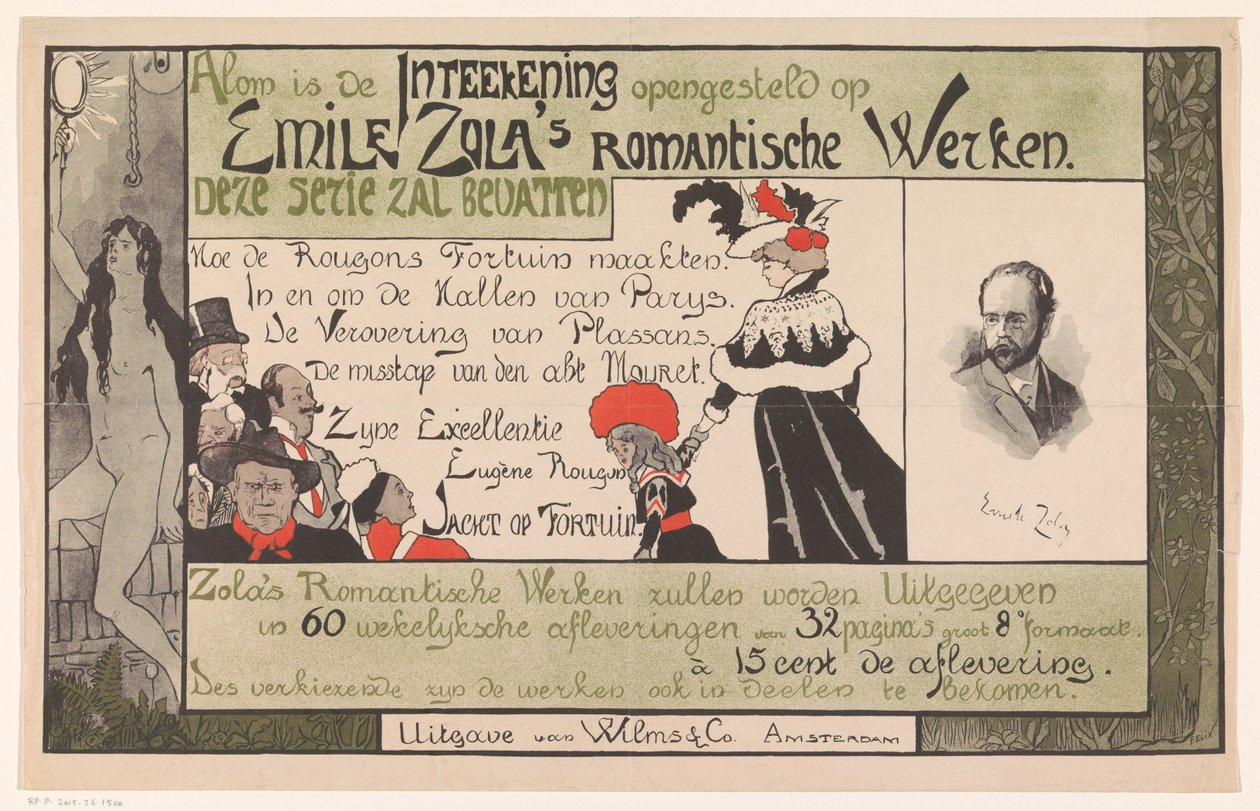 Alom is de Inteekening opengesteld op
Emile Zola's romantische Werken.
Deze serie zal bevatten
Hoe de Rougons Fortuin maakten.
In en om de Hallen van Parys.
De Verovering van Plassans.
De misstap van den abt Mouret.
Zyne Excellentie
Eugène Rougon
Jacht op Fortuin.
Emile Zola
Zola's Romantische Werken zullen worden Uitgegeven
in 60 wekelyksche afleveringen van 32 pagina's groot 8° formaat.
à 15 cent de aflevering.
Des verkiezende zyn de werken ook in deelen te bekomen.
Uitgave van Wilms & Co. Amsterdam
FELIX
RP-P-2015-26-1500